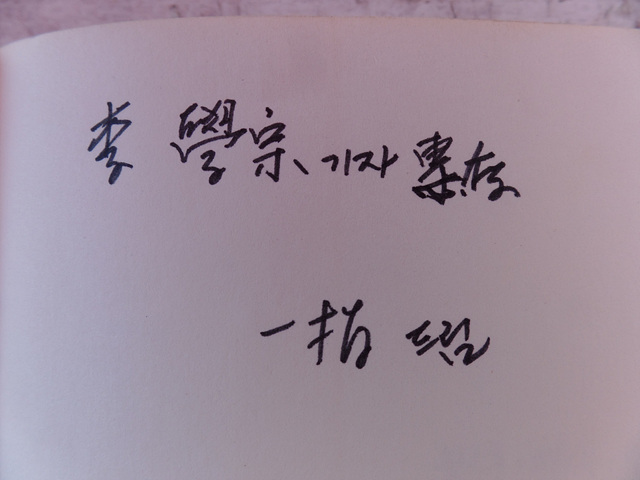 李 學宗 기자 惠存
一指 드림